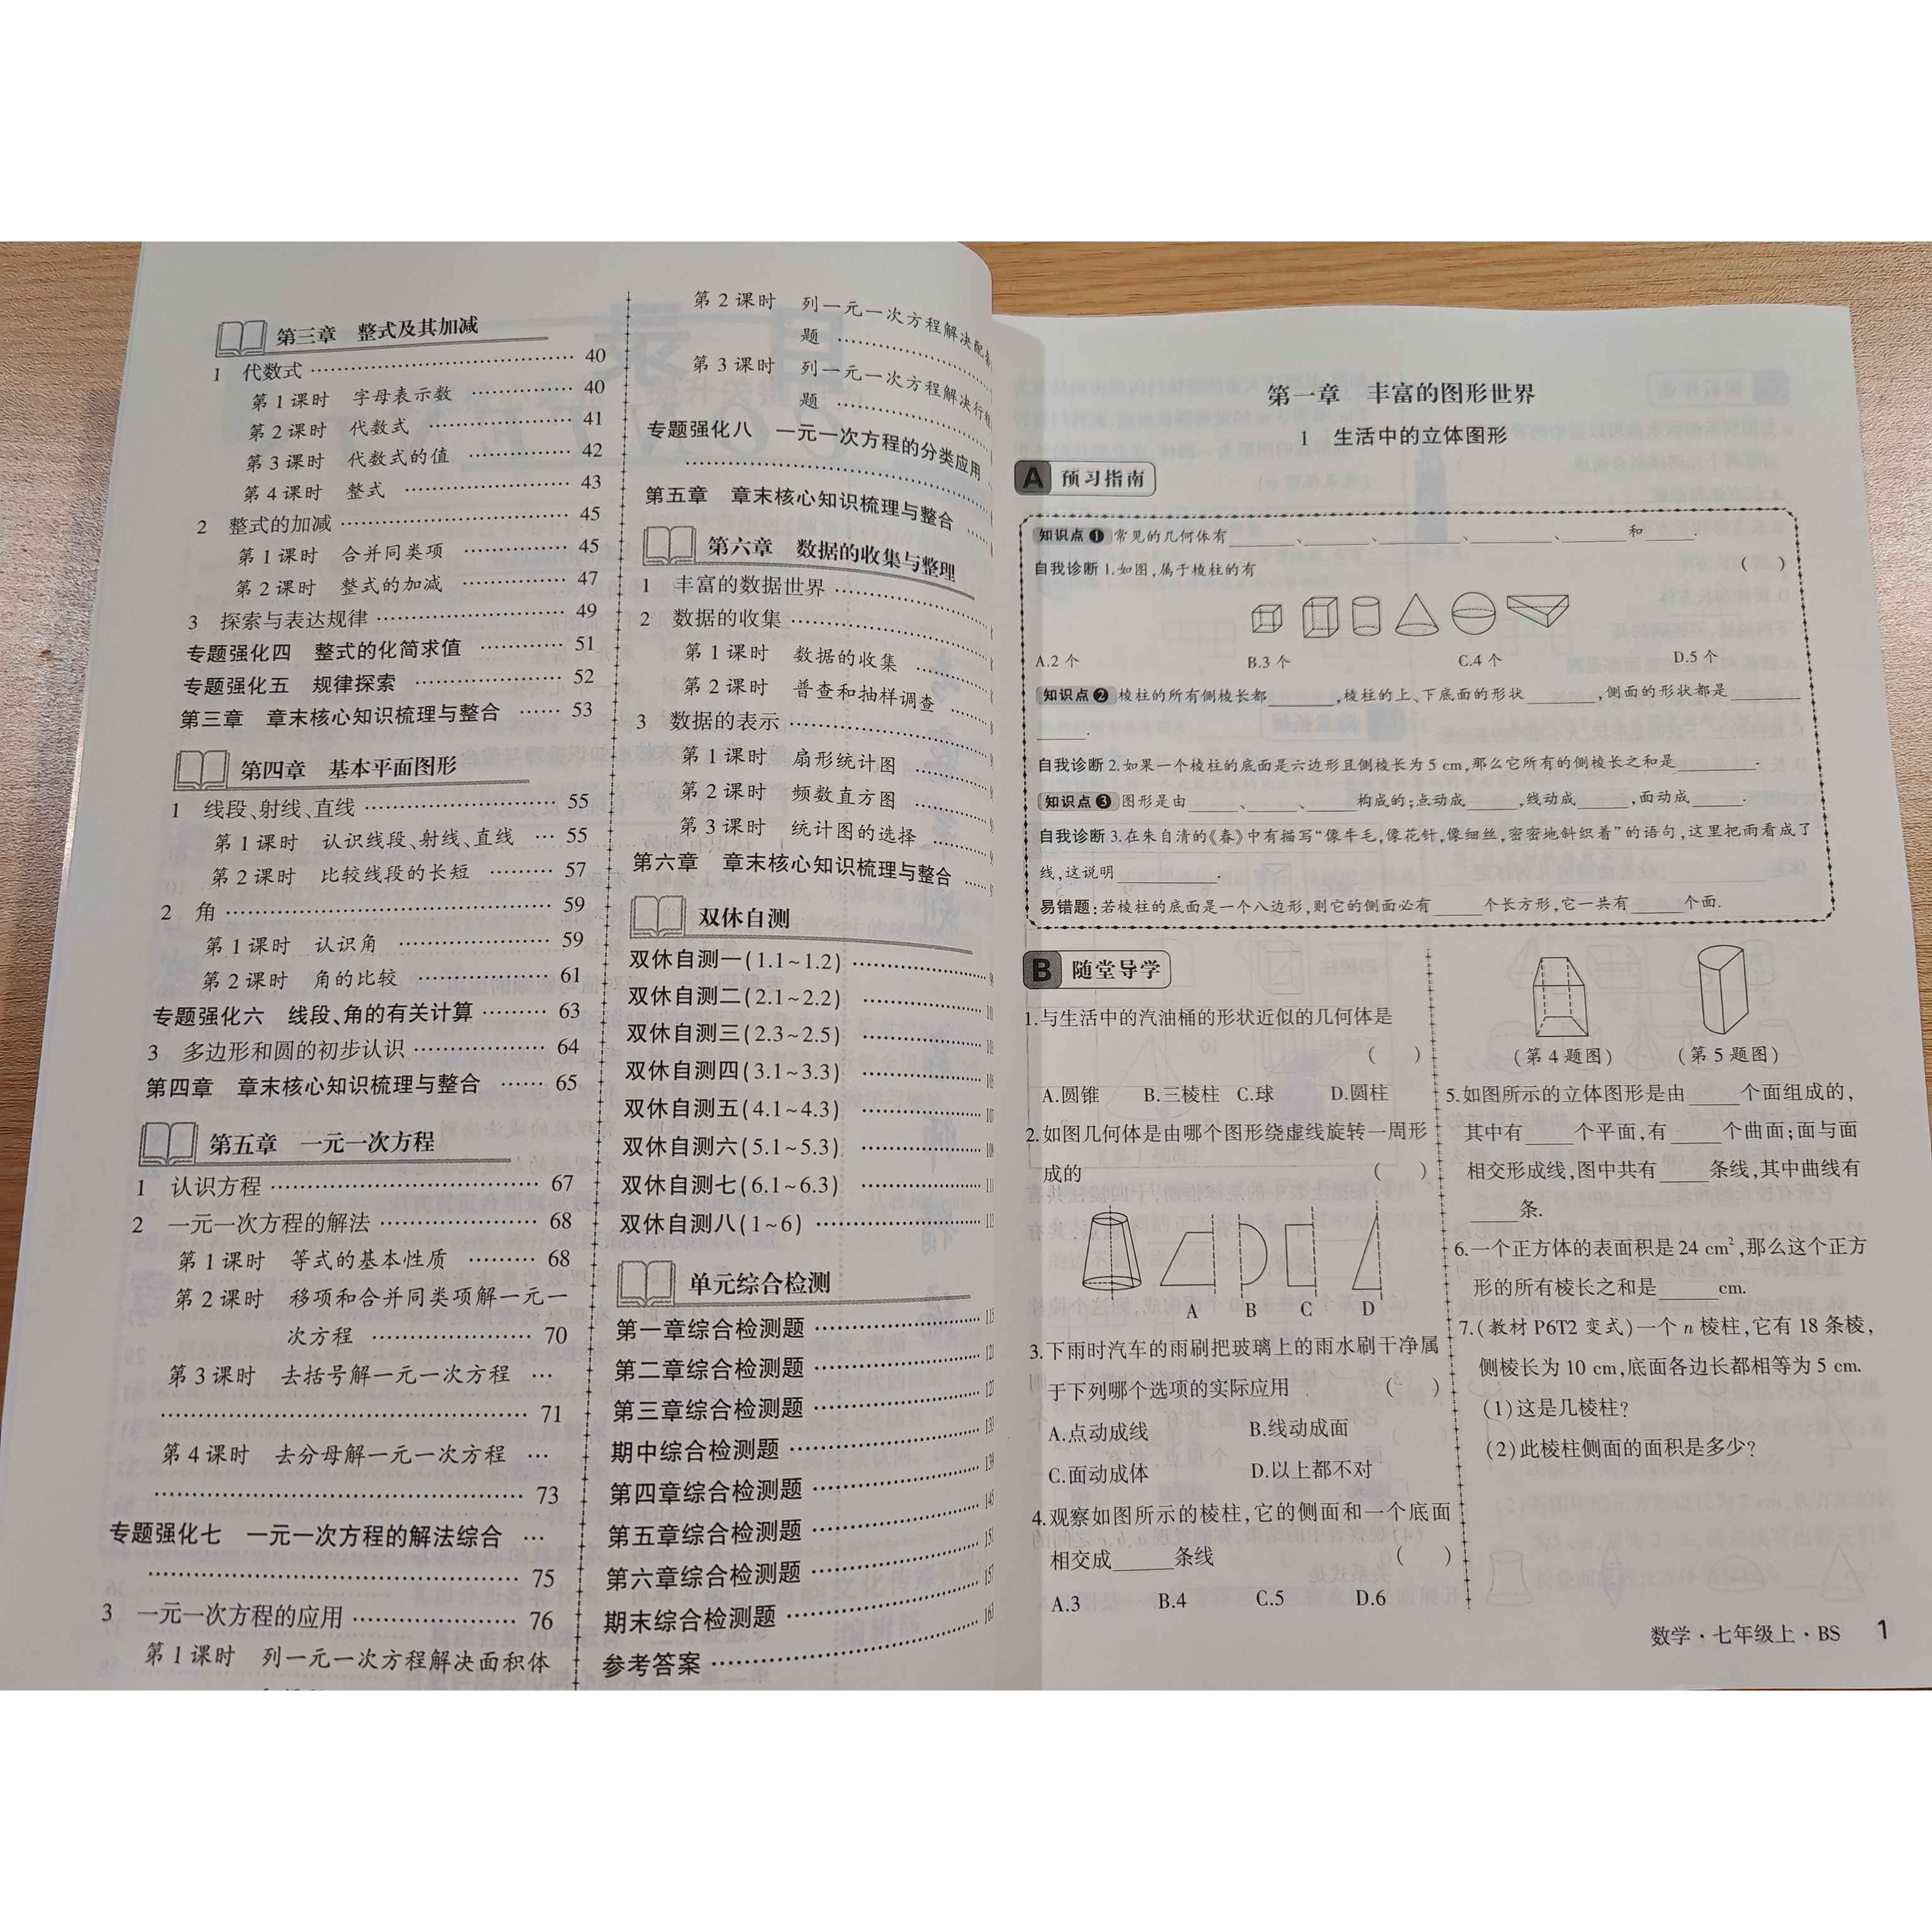 第三章 整式及其加减
1 代数式 …… 40
第1课时 字母表示数 …… 40
第2课时 代数式 …… 41
第3课时 代数式的值 …… 42
第4课时 整式 …… 43
2 整式的加减 …… 45
第1课时 合并同类项 …… 45
第2课时 整式的加减 …… 47
3 探索与表达规律 …… 49
专题强化四 整式的化简求值 …… 51
专题强化五 规律探索 …… 52
第三章 章末核心知识梳理与整合 …… 53
第四章 基本平面图形
1 线段、射线、直线 …… 55
第1课时 认识线段、射线、直线 … 55
第2课时 比较线段的长短 …… 57
2 角 …… 59
第1课时 认识角 …… 59
第2课时 角的比较 …… 61
专题强化六 线段、角的有关计算 …… 63
3 多边形和圆的初步认识 …… 64
第四章 章末核心知识梳理与整合 …… 65
第五章 一元一次方程
1 认识方程 …… 67
2 一元一次方程的解法 …… 68
第1课时 等式的基本性质 …… 68
第2课时 移项和合并同类项解一元一
次方程 …… 70
第3课时 去括号解一元一次方程 …
…… 71
第4课时 去分母解一元一次方程 …
…… 73
专题强化七 一元一次方程的解法综合 …
…… 75
3 一元一次方程的应用 …… 76
第1课时 列一元一次方程解决面积体
第2课时 列一元一次方程解决配套
题 ……
第3课时 列一元一次方程解决行程
题 ……
专题强化八 一元一次方程的分类应用
……
第五章 章末核心知识梳理与整合 ……
第六章 数据的收集与整理
1 丰富的数据世界 ……
2 数据的收集 ……
第1课时 数据的收集 ……
第2课时 普查和抽样调查 ……
3 数据的表示 ……
第1课时 扇形统计图 ……
第2课时 频数直方图 ……
第3课时 统计图的选择 ……
第六章 章末核心知识梳理与整合 ……
双休自测
双休自测一(1.1~1.2) ……
双休自测二(2.1~2.2) ……
双休自测三(2.3~2.5) ……
双休自测四(3.1~3.3) ……
双休自测五(4.1~4.3) ……
双休自测六(5.1~5.3) ……
双休自测七(6.1~6.3) ……
双休自测八(1~6) ……
单元综合检测
第一章综合检测题 …… 115
第二章综合检测题 …… 121
第三章综合检测题 …… 127
期中综合检测题 …… 133
第四章综合检测题 …… 139
第五章综合检测题 …… 145
第六章综合检测题 …… 151
期末综合检测题 …… 157
参考答案 …… 163
第一章 丰富的图形世界
1 生活中的立体图形
A 预习指南
知识点❶ 常见的几何体有______、______、______、______、______和______.
自我诊断1.如图,属于棱柱的有 ( )
A.2个 B.3个 C.4个 D.5个
知识点❷ 棱柱的所有侧棱长都______,棱柱的上、下底面的形状______,侧面的形状都是______
______.
自我诊断2.如果一个棱柱的底面是六边形且侧棱长为5 cm,那么它所有的侧棱长之和是______.
知识点❸ 图形是由______、______、______构成的;点动成______,线动成______,面动成______.
自我诊断3.在朱自清的《春》中有描写“像牛毛,像花针,像细丝,密密地斜织着”的语句,这里把雨看成了
线,这说明______.
易错题:若棱柱的底面是一个八边形,则它的侧面必有______个长方形,它一共有______个面.
B 随堂导学
1.与生活中的汽油桶的形状近似的几何体是
( )
A.圆锥 B.三棱柱 C.球 D.圆柱
2.如图几何体是由哪个图形绕虚线旋转一周形
成的 ( )
A B C D
3.下雨时汽车的雨刷把玻璃上的雨水刷干净属
于下列哪个选项的实际应用 ( )
A.点动成线 B.线动成面
C.面动成体 D.以上都不对
4.观察如图所示的棱柱,它的侧面和一个底面
相交成______条线 ( )
A.3 B.4 C.5 D.6
(第4题图) (第5题图)
5.如图所示的立体图形是由______个面组成的,
其中有______个平面,有______个曲面;面与面
相交形成线,图中共有______条线,其中曲线有
______条.
6.一个正方体的表面积是24 cm²,那么这个正方
形的所有棱长之和是______cm.
7.(教材P6T2变式)一个n棱柱,它有18条棱,
侧棱长为10 cm,底面各边长都相等为5 cm.
(1)这是几棱柱?
(2)此棱柱侧面的面积是多少?
数学·七年级上·BS 1